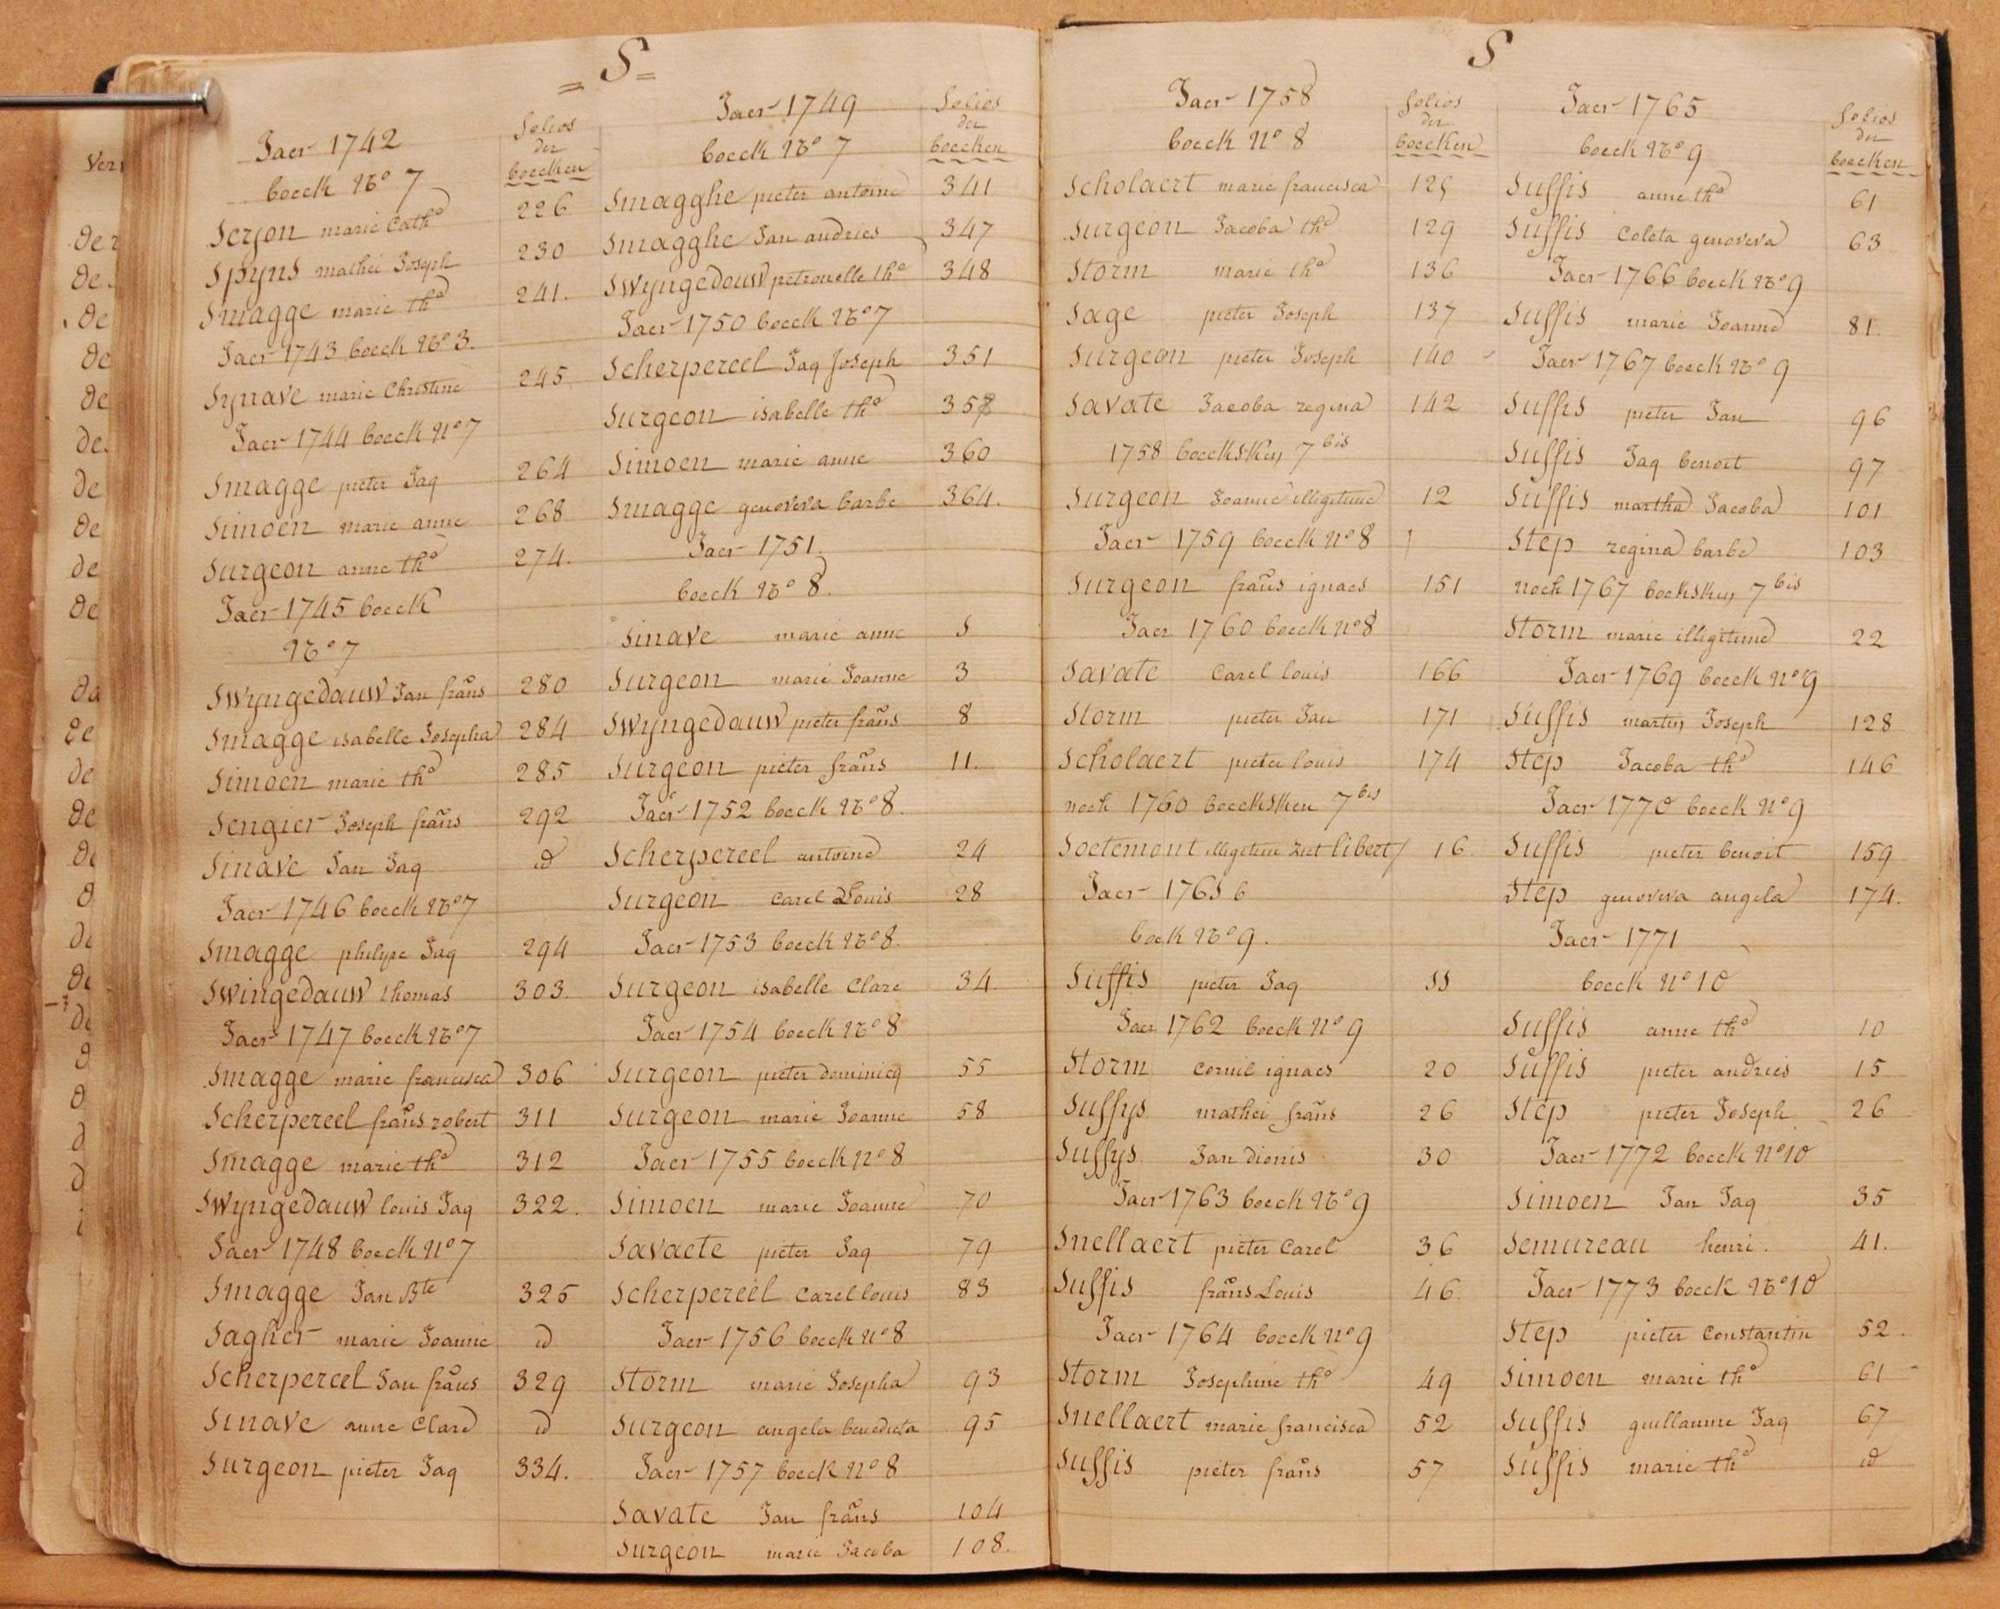 = S =
Jaer 1742
boeck No 7
folios
der
boecken
Serjon marie Cathe 226
Spyns mathei Joseph 230
Smagge marie the 241.
Jaer 1743 boeck No 3.
Synave marie Christine 245
Jaer 1744 boeck No 7
Smagge pieter Jaq 264
Simoen marie anne 268
Surgeon anne the 274.
Jaer 1745 boeck
No 7
Swyngedauw Jan frans 280
Smagge isabelle Josepha 284
Simoen marie the 285
Sengier Joseph frans 292
Sinave Jan Jaq id
Jaer 1746 boeck No 7
Smagge philipe Jaq 294
Swingedauw thomas 303.
Jaer 1747 boeck No 7
Smagge marie francisca 306
Scherpereel frans robert 311
Smagge marie the 312
Swyngedauw louis Jaq 322.
Jaer 1748 boeck No 7
Smagge Jan Bte 325
Sagher marie Joanne id
Scherpereel Jan frans 329
Sinave anne Clare id
Surgeon pieter Jaq 334.
Jaer 1749
boeck No 7
folios
der
boecken
Smagghe pieter antoine 341
Smagghe Jan andries 347
Swyngedouw petronelle the 348
Jaer 1750 boeck No 7
Scherpereel Jaq Joseph 351
Surgeon isabelle the
Simoen marie anne 360
Smagge genoveva barbe 364.
Jaer 1751.
boeck No 8.
Sinave marie anne S
Surgeon marie Joanne 3
Swyngedauw pieter frans 8
Surgeon pieter frans 11.
Jaer 1752 boeck No 8.
Scherpereel antoine 24
Surgeon Carel Louis 28
Jaer 1753 boeck No 8.
Surgeon isabelle Clare 34.
Jaer 1754 boeck No 8
Surgeon pieter dominicq 55
Surgeon marie Joanne 58
Jaer 1755 boeck No 8
Simoen marie Joanne 70
Savaete pieter Jaq 79
Scherpereel Carel louis 83
Jaer 1756 boeck No 8
Storm marie Josepha 93
Surgeon angela benedicta 95
Jaer 1757 boeck No 8
Savate Jan frans 104
Surgeon marie Jacoba 108.
S
Jaer 1758
boeck No 8
folios
der
boecken
Scholaert marie francisca 125
Surgeon Jacoba the 129
Storm marie the 136
Sage pieter Joseph 137
Surgeon pieter Joseph 140
Savate Jacoba regina 142
1758 boecksken 7 bis
Surgeon Joanne illigitime 12
Jaer 1759 boeck No 8
Surgeon frans ignaes 151
Jaer 1760 boeck No 8
Savate Carel louis 166
Storm pieter Jan 171
Scholaert pieter louis 174
noch 1760 boecksken 7 bis
Soetemont illigitime libert 16
Jaer 1761
boek No 9.
Suffis pieter Jaq SS
Jaer 1762 boeck No 9
Storm Cornil ignaes 20
Suffys mathei frans 26
Suffys Jan dionis 30
Jaer 1763 boeck No 9
Snellaert pieter Carel 36
Suffis frans Louis 46.
Jaer 1764 boeck No 9
Storm Josephine the 49
Snellaert marie francisca 52
Suffis pieter frans 57
Jaer 1765
boeck No 9
folios
der
boecken
Suffis anne the 61
Suffis Coleta genoveva 63
Jaer 1766 boeck No 9
Suffis marie Joanne 81.
Jaer 1767 boeck No 9
Suffis pieter Jan 96
Suffis Jaq benoit 97
Suffis martha Jacoba 101
Step regina barbe 103
noch 1767 boeksken 7 bis
Storm marie illigitime 22
Jaer 1769 boeck No 9
Suffis martin Joseph 128
Step Jacoba the 146
Jaer 1770 boeck No 9
Suffis pieter benoit 159
Step genoveva angela 174.
Jaer 1771
boeck No 10
Suffis anne the 10
Suffis pieter andries 15
Step pieter Joseph 26
Jaer 1772 boeck No 10
Simoen Jan Jaq 35
Semureau henri. 41.
Jaer 1773 boeck No 10
Step pieter Constantin 52.
Simoen marie the 61
Suffis guillaume Jaq 67
Suffis marie the id